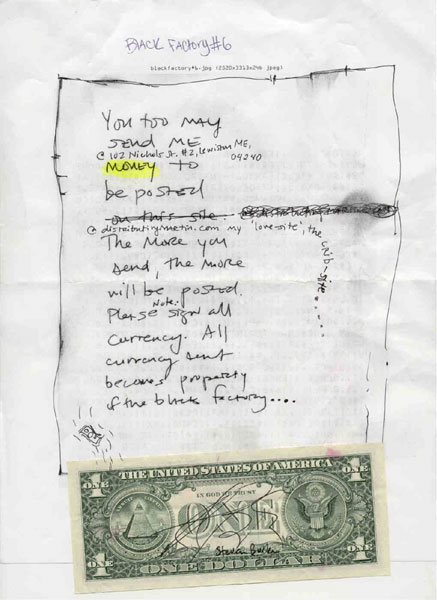 BLACK FACTORY #6
blackfactory#6.jpg (2520x3313x24b jpeg)
You too may
SEND ME
@ 102 Nichols St. #2, Lewiston ME,
04240
MONEY TO
be posted
on this site.
@ distributingmartin.com my 'love-site', the crib-site.....
The More you
send, the more
will be posted.
Note.
Please sign all
currency. All
currency sent
becomes property
of the black factory....
THE UNITED STATES OF AMERICA
ONE
ONE
IN GOD WE TRUST
ONE
ONE
ONE
ONE DOLLAR